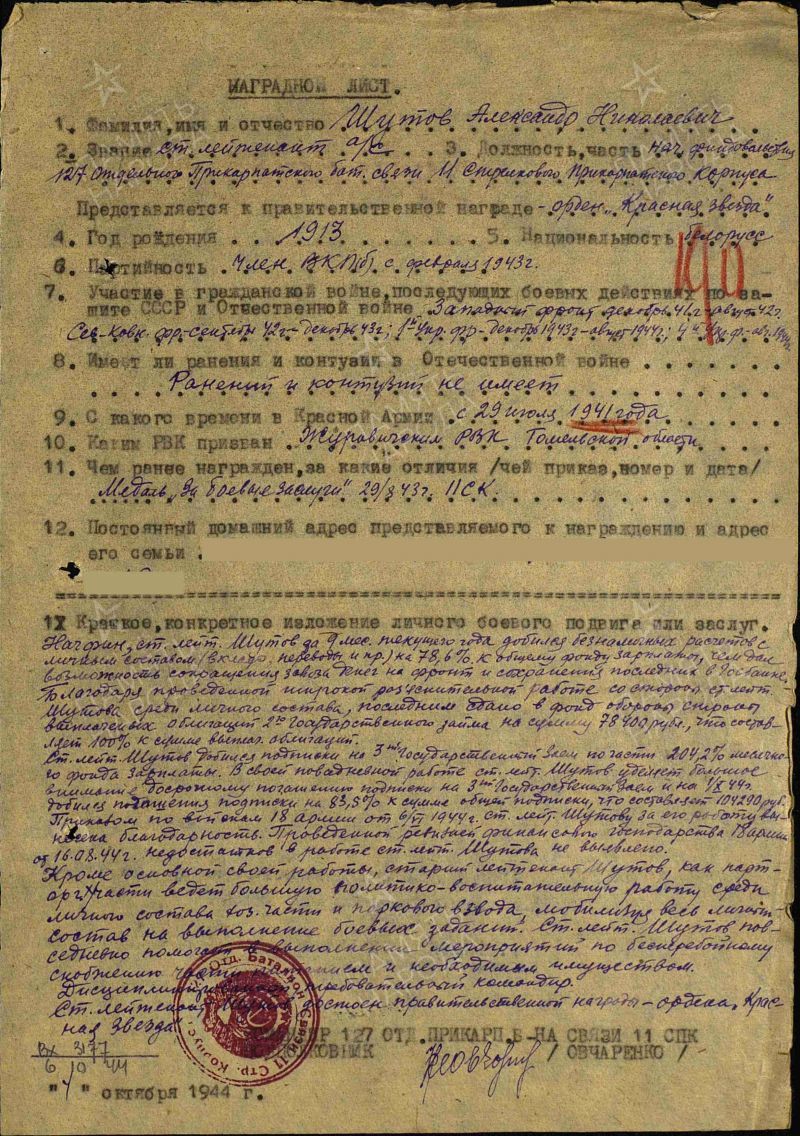 НАГРАДНОЙ ЛИСТ.
1. Фамилия, имя и отчество Шутов Александр Николаевич
2. Звание ст. лейтенант а/с 3. Должность, часть нач. финдовольствия
127 отдельного Прикарпатского бат. связи 11 Стрелкового Прикарпатского Корпуса
Представляется к правительственной награде - орден „Красная звезда"
4. Год рождения 1913 5. Национальность белорусс
6. Партийность Член ВКП(б) с февраля 1943г.
7. Участие в гражданской войне, последующих боевых действиях по за-
щите СССР и Отечественной войне Западный фронт декабрь 41г.-август 42г.
Сев-Кавк. фр-сентябрь 42г-декабрь 43г; 1й Укр. фр-декабрь 1943г-август 1944г; 4й Укр. ф-
190
8. Имеет ли ранения и контузии в Отечественной войне
Ранений и контузий не имеет
9. С какого времени в Красной Армии с 29 июля 1941 года
10. Каким РВК призван Журавичским РВК Гомельской области
11. Чем ранее награжден, за какие отличия /чей приказ, номер и дата/
Медаль „За боевые заслуги" 43г. 11СК.
12. Постоянный домашний адрес представляемого к награждению и адрес
его семьи .
1X Краткое, конкретное изложение личного боевого подвига или заслуг.
Начфин, ст. лейт. Шутов за 9 мес. текущего года добился безналичных расчетов с
личным составом (вклады, переводы и пр.) на 78,6% к общему фонду зарплаты, чем дал
возможность сокращения завоза денег на фронт и сохранения последних в Госбанке.
Благодаря проведенной широкой раз'яснительной работе со стороны ст. лейт.
Шутова среди личного состава, последним сдано в фонд обороны страны
облигаций 2го Государственного займа на сумму 78400 рубл., что состав-
ляет 100% к сумме облигаций.
Ст. лейт. Шутов добился подписки на 3ий Государственный Заем по части 204,2% месячно-
го фонда зарплаты. В своей повседневной работе ст. лейт. Шутов уделяет большое
внимание досрочному погашению подписки на 3ий Государственный заем и на 1/X 44г.
добился погашения подписки на 83,5% к сумме общей подписки, что составляет 104290 руб.
Приказом по войскам 18 армии от 1944г. ст. лейт. Шутову за его работу вы-
несена благодарность. Проведенной ревизией финансового 18 армии
от 16.08.44г. недостатков в работе ст. лейт. Шутова не выявлено.
Кроме основной своей работы, старший лейтенант Шутов, как парт-
орг части ведет большую политико-воспитательную работу среди
личного состава хоз. части и паркового взвода, мобилизуя весь личный
состав на выполнение боевых заданий. Ст. лейт. Шутов пов-
седневно помогает в выполнении мероприятий по бесперебойному
снабжению части и необходимым имуществом.
Дисциплинированный требовательный командир.
Ст. лейтенант Шутов достоен правительственной награды - ордена „Крас-
ная Звезда"
КОМАНДИР 127 ОТД. ПРИКАРП. Б-НА СВЯЗИ 11 СПК
/ ОВЧАРЕНКО /
Отд. Батальон Связи 11 Стр. Корпус
Вх 3177
6 10 44
" 4 " октября 1944 г.